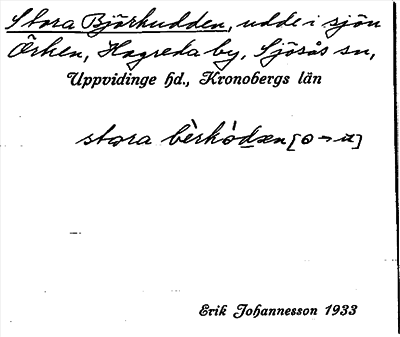 Stora Björkudden, udde i sjön
Örken, Hagreda by, Sjösås sn,
Uppvidinge hd., Kronobergs län
stora bèrkòdæn [o → u]
Erik Johannesson 1933